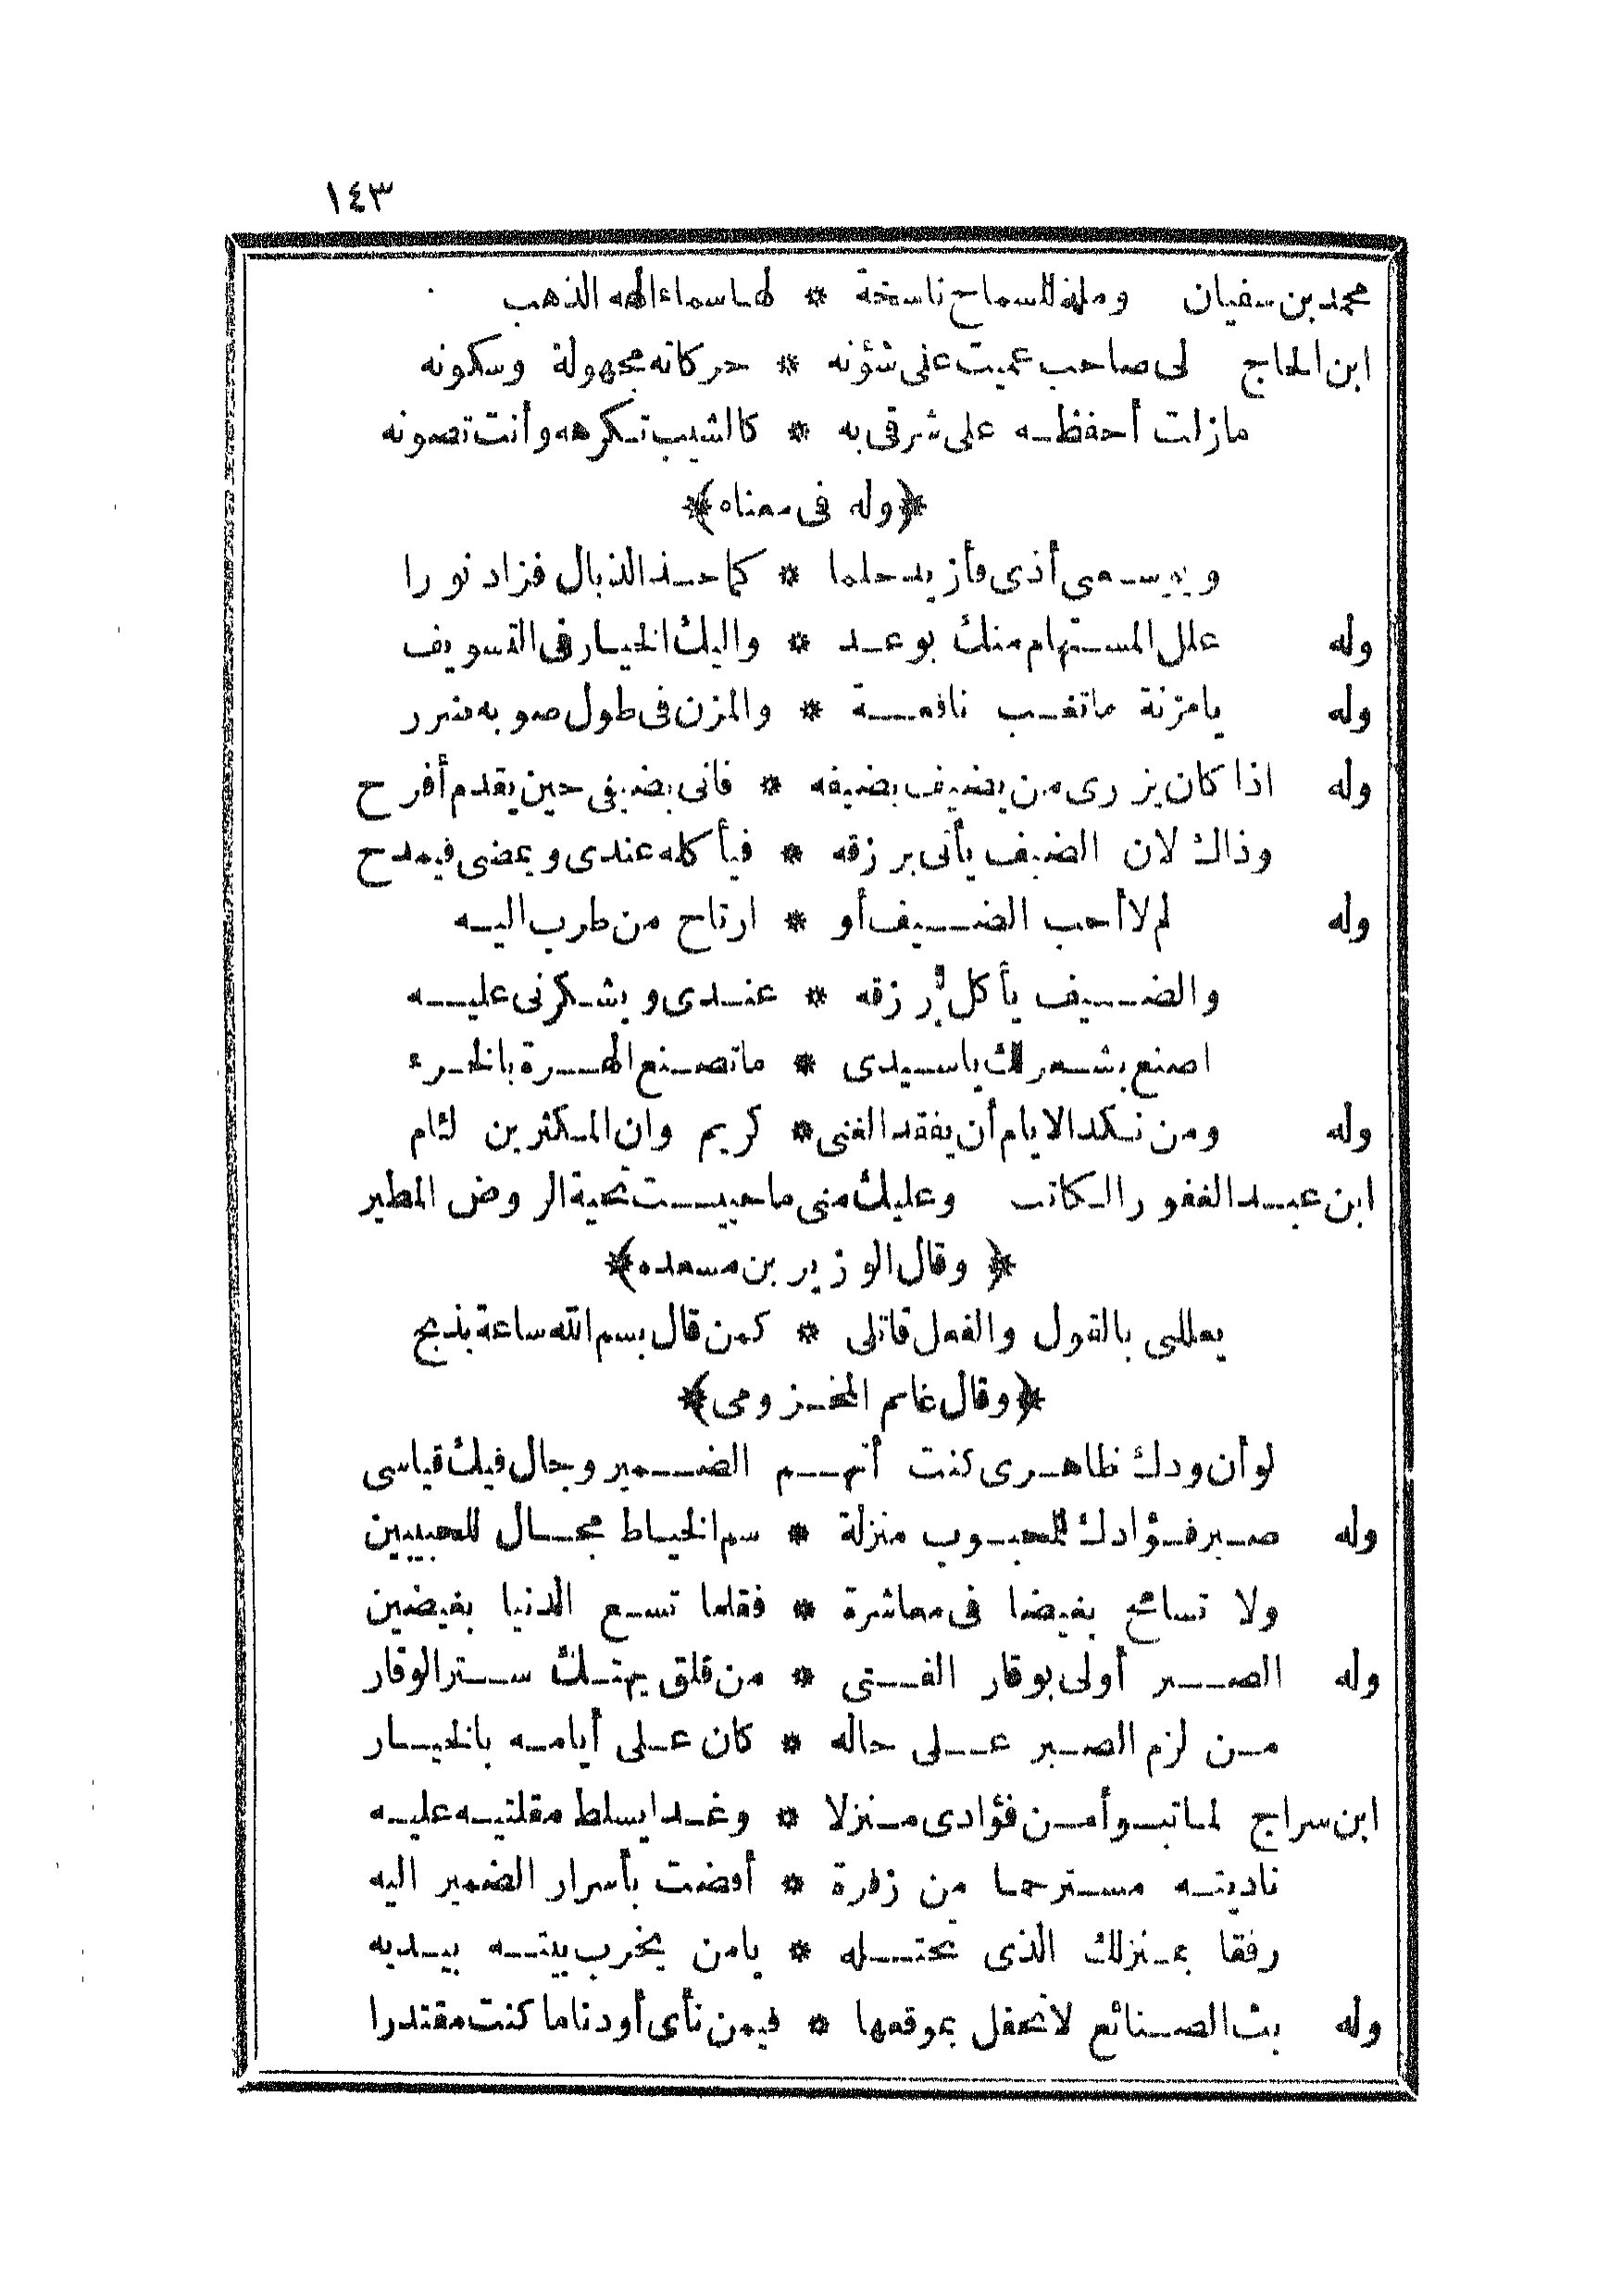 ١٤٣
محمد بن سفيان وملة للسماح ناسخة * لها سماء الهه الذهب
ابن الحاج لى صاحب عميت عنى شؤنه * حركاته مجهولة وسكونه
مازلت أحفظه على شرقى به * كالشيب تكرهه وأنت تصونه
﴿وله فى معناه﴾
ويوسعى أذى فأزيد حلما * كما حذ الذبال فزاد نورا
وله علل المستهام منك بوعد * واليك الخيار فى التسويف
وله يا مزنة ما تغب نافعة * والمزن فى طول صوبه ضرر
وله اذا كان يزرى من يضيف بضيفه * فانى بضيفى حين يقدم أفرح
وذاك لان الضيف يأتى برزقه * فيأكله عندى ويمضى فيمدح
وله لم لا أحب الضيف أو * ارتاح من طرب اليه
والضيف يأكل رزقه * عندى ويشكرنى عليه
اصنع بشعرك يا سيدى * ما تصنع الهرة بالخرء
وله ومن نكد الايام أن يفقد الغنى * كريم وان المكثرين لئام
ابن عبد الغفور الكاتب وعليك منى ما حييت تحية الروض المطير
﴿وقال الوزير بن مسعده﴾
يعللى بالقول والفعل قاتلى * كمن قال بسم الله ساعة يذبح
﴿وقال غانم المخزومى﴾
لو أن ودك ظاهرى كنت أتهم الضمير وجال فيك قياسى
وله صبر فؤادك للمحبوب منزلة * سم الخياط مجال للحبيبين
ولا تسامح بغيضا فى معاشرة * فقلما تسع الدنيا بغيضين
وله الصبر أولى بوقار الفتى * من قلق يهتك ستر الوقار
من لزم الصبر على حاله * كان على أيامه بالخيار
ابن سراج لما تبوأ من فؤادى منزلا * وغدا يسلط مقلتيه عليه
ناديته مسترحما من زفرة * أفضت بأسرار الضمير اليه
رفقا بمنزلك الذى تحتله * يا من يخرب بيته بيديه
وله بث الصنائع لا تحفل بموقعها * فيمن نأى أو دنا ما كنت مقتدرا